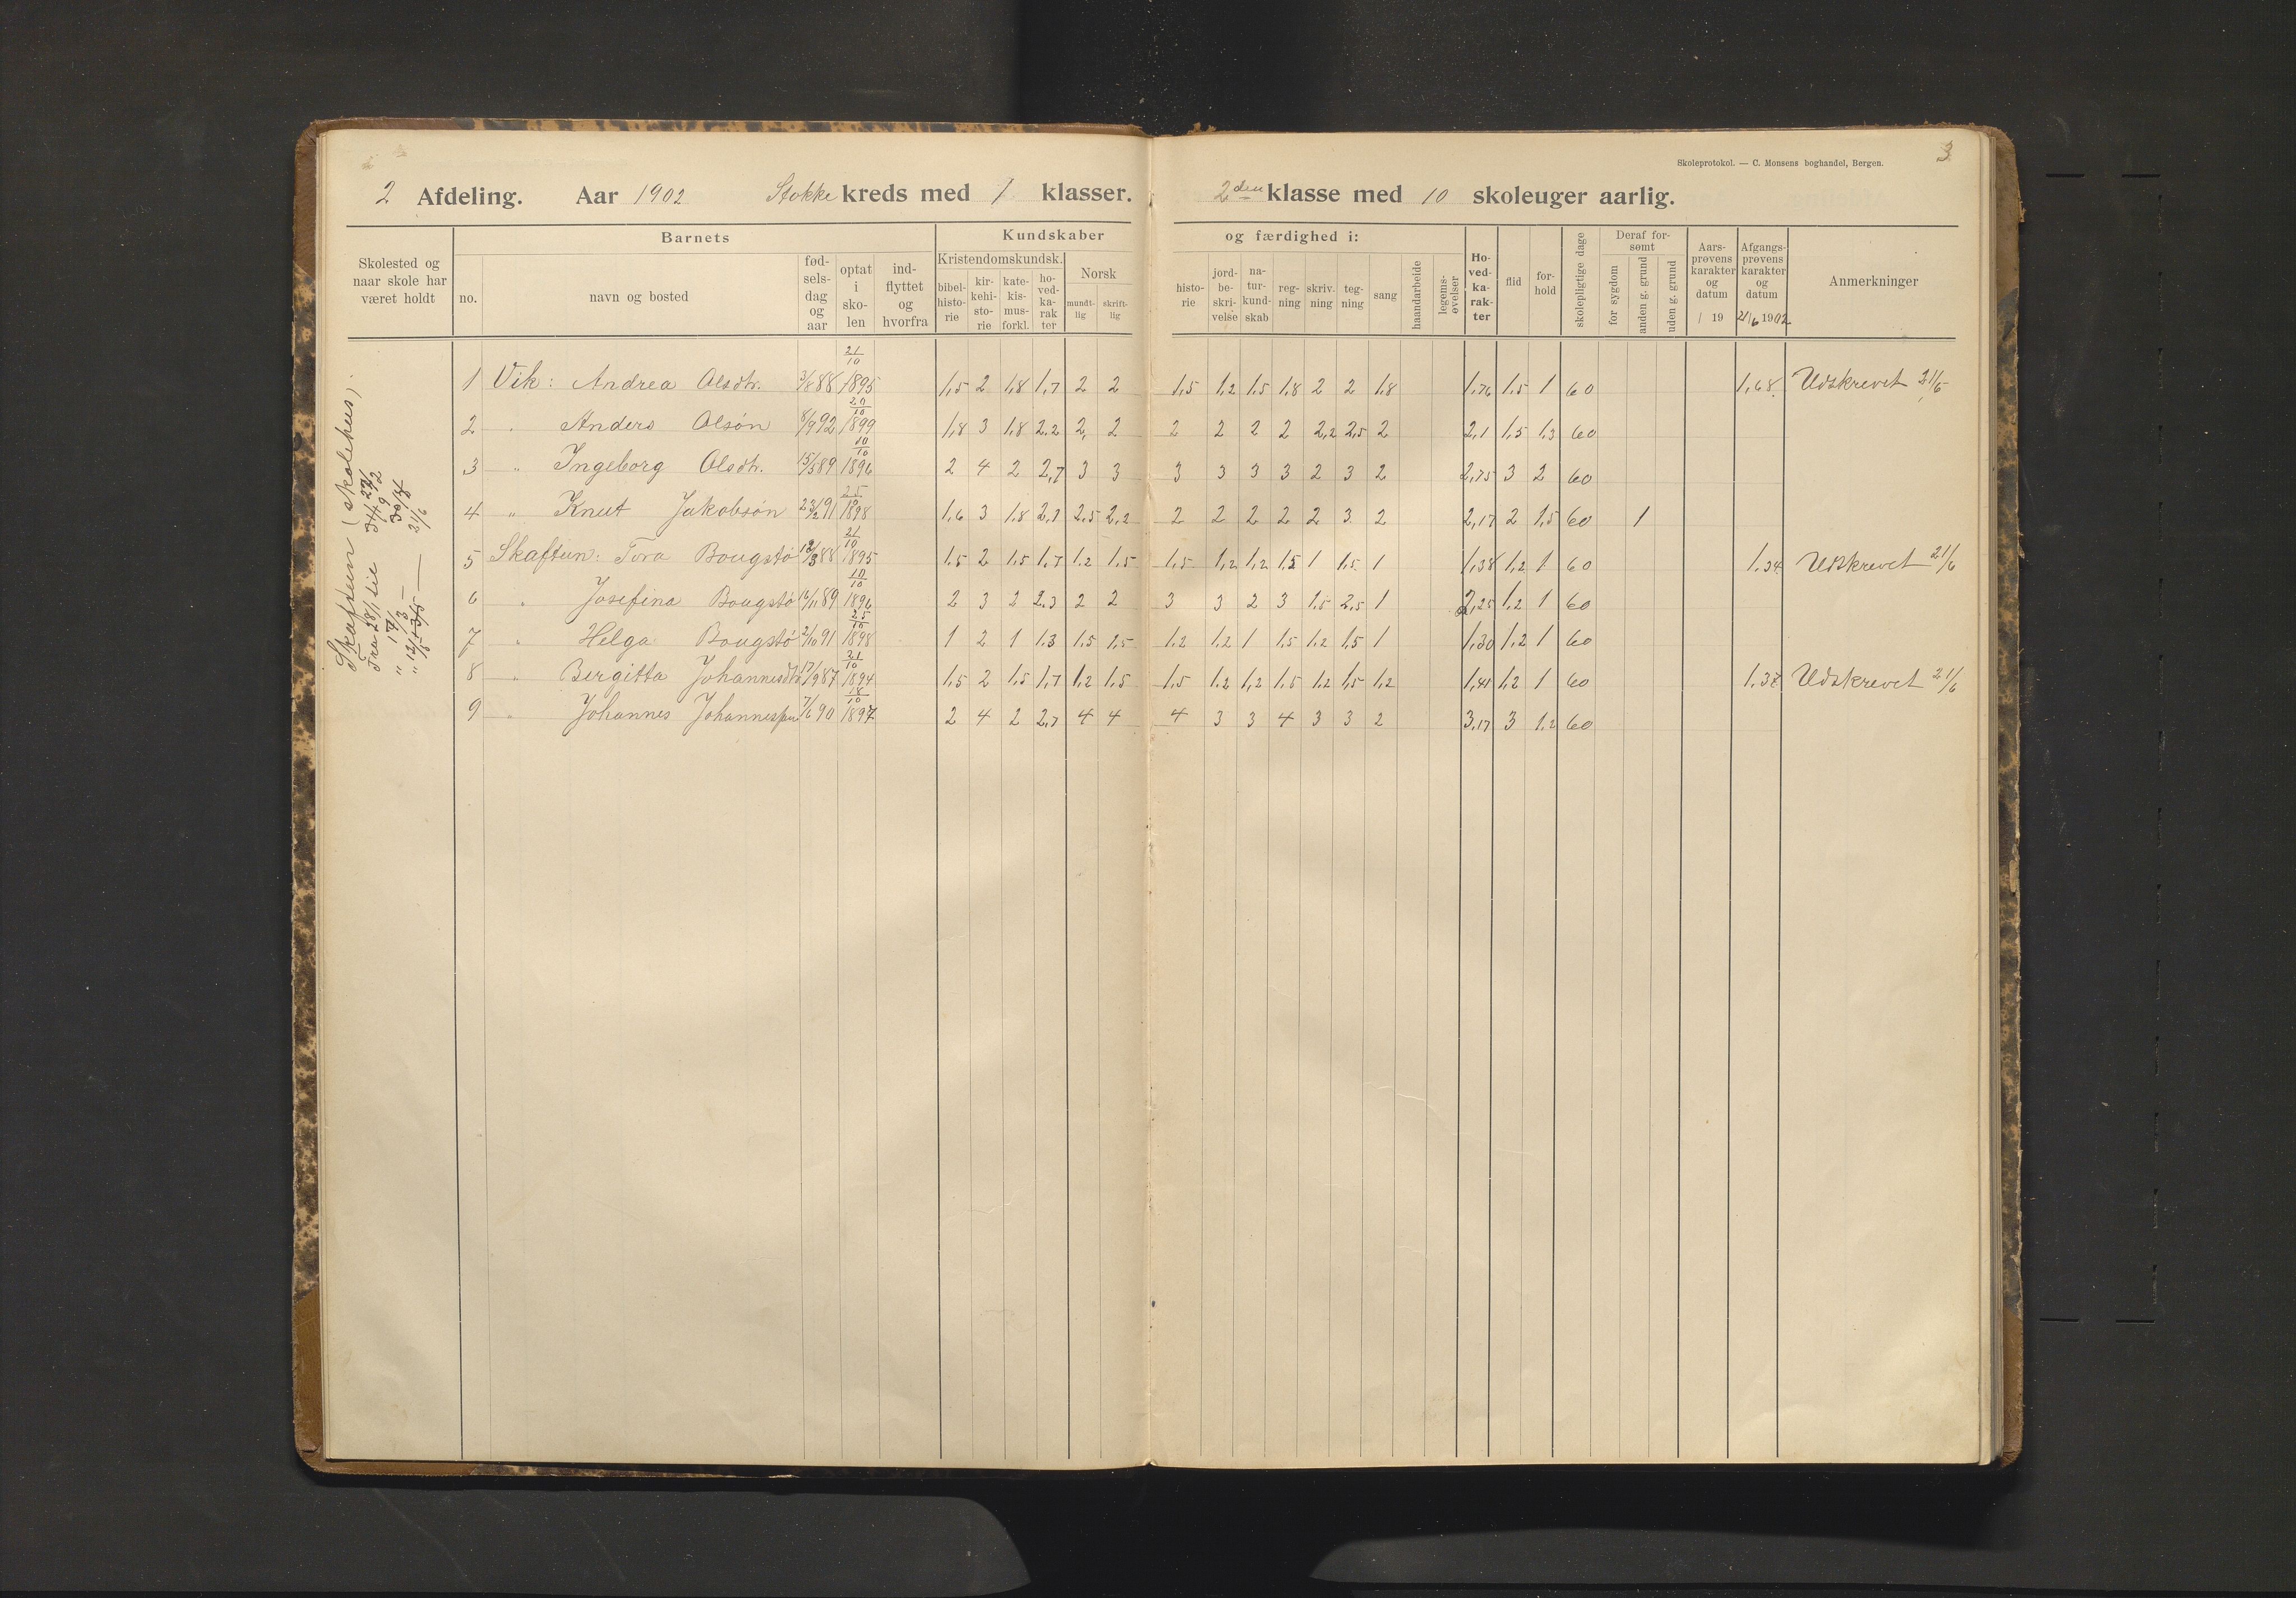 Skoleprotokol. — C. Monsens boghandel, Bergen.
3
2 Afdeling. Aar 1902 Stokke kreds med 1 klasser. 2den klasse med 10 skoleuger aarlig.
Barnets Kundskaber og færdighed i:
Skolested og naar skole har været holdt
no. navn og bosted
fødselsdag og aar
optat i skolen
indflyttet og hvorfra
Kristendomskundsk.
bibelhistorie kirkehistorie katekismusforkl. hovedkarakter
Norsk
mundtlig skriftlig
historie jordbeskrivelse naturkundskab regning skrivning tegning sang haandarbeide legemsøvelser
Hovedkarakter flid forhold skolepligtige dage
Deraf forsømt
for sygdom anden g. grund uden g. grund
Aarsprøvens karakter og datum / 19
Afgangsprøvens karakter og datum 21/6 1902
Anmerkninger
Skaftun (skolehus).
1 Vik: Andrea Olsdtr. 3/8 88 21/10 1895 1,5 2 1,8 1,7 2 2 1,5 1,2 1,5 1,8 2 2 1,8 1,76 1,5 1 60 1,68 Udskrevet 21/6
2 " Anders Olsøn 8/9 92 20/10 1899 1,8 3 1,8 2,2 2 2 2 2 2 2 2,2 2,5 2 2,1 1,5 1,3 60
3 " Ingeborg Olsdtr. 15/5 89 10/10 1896 2 4 2 2,7 3 3 3 3 3 3 2 3 2 2,75 3 2 60
4 " Knut Jakobsøn 23/12 91 25/10 1898 1,6 3 1,8 2,1 2,5 2,2 2 2 2 2 2 3 2 2,17 2 1,5 60 1
5 Skaftun: Tora Bougstø 88 21/10 1895 1,5 2 1,5 1,7 1,2 1,5 1,5 1,2 1,2 1,5 1 1,5 1 1,38 1,2 1 60 1,34 Udskrevet 21/6
6 " Josefina Bougstø 16/11 89 10/10 1896 2 3 2 2,3 2 2 3 3 2 3 1,5 2,5 1 2,25 1,2 1 60
7 " Helga Bougstø 2/10 91 25/10 1898 1 2 1 1,3 1,5 1,5 1,2 1,2 1 1,5 1,2 1,5 1 1,30 1,2 1 60
8 " Bergitta Johannesdtr 17/9 87 21/10 1894 1,5 2 1,5 1,7 1,2 1,5 1,5 1,2 1,2 1,5 1,2 1,5 1,2 1,41 1,2 1 60 Udskrevet 21/6
9 " Johannes Johannessøn 7/6 90 18/10 1897 2 4 2 2,7 4 4 4 3 3 4 3 3 2 3,17 3 1,2 60